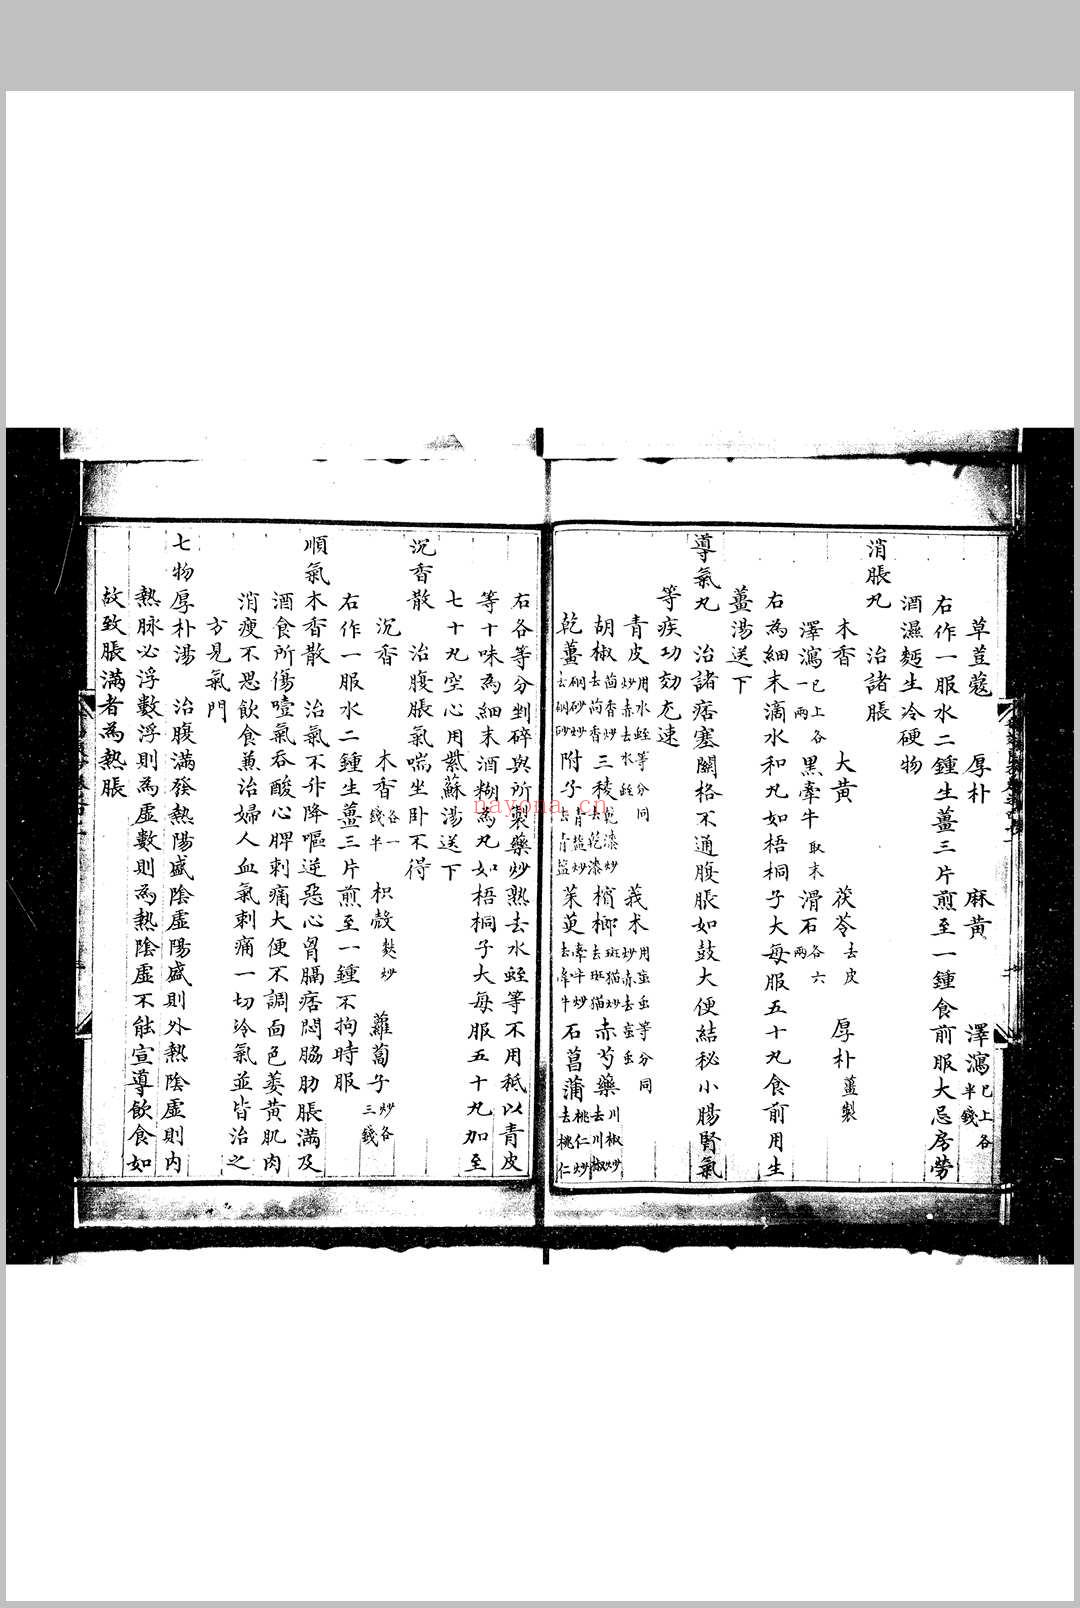 草荳蔻　厚朴　麻黃　澤瀉已上各半錢
右作一服水二鍾生薑三片煎至一鍾食前服大忌房勞
酒濕麪生冷硬物
消脹丸　治諸脹
木香　大黃　茯苓去皮　厚朴薑製
澤瀉已上各一兩　黑牽牛取末　滑石各六兩
右為細末滴水和丸如梧桐子大每服五十丸食前用生
薑湯送下
導氣丸　治諸痞塞關格不通腹脹如鼓大便結秘小腸腎氣
等疾功効尤速
青皮用水蛭等分同炒赤去水蛭　莪朮用䖟虫等分同炒赤去䖟虫
胡椒茴香炒去茴香　三稜乾漆炒去乾漆　檳榔斑猫炒去斑猫　赤芍藥川椒炒去川椒
乾薑硇砂炒去硇砂　附子青盐炒去青盐　茱萸牽牛炒去牽牛　石菖蒲桃仁炒去桃仁
右各等分剉碎與所製藥炒熟去水蛭等不用秖以青皮
等十味為細末酒糊為丸如梧桐子大每服五十丸加至
七十丸空心用紫蘇湯送下
沉香散　治腹脹氣喘坐卧不得
沉香　木香各一錢半　枳殼麩炒　蘿蔔子炒各三錢
右作一服水二鍾生薑三片煎至一鍾不拘時服
順氣木香散　治氣不升降嘔逆惡心胷膈痞悶脇肋脹滿及
酒食所傷噎氣吞酸心脾刺痛大便不調面色萎黃肌肉
消瘦不思飲食兼治婦人血氣刺痛一切冷氣並皆治之
方見氣門
七物厚朴湯　治腹滿發熱陽盛陰虛陽盛則外熱陰虛則内
熱脉必浮數浮則為虛數則為熱陰虛不能宣導飲食如
故致脹滿者為熱脹
nayona.cn